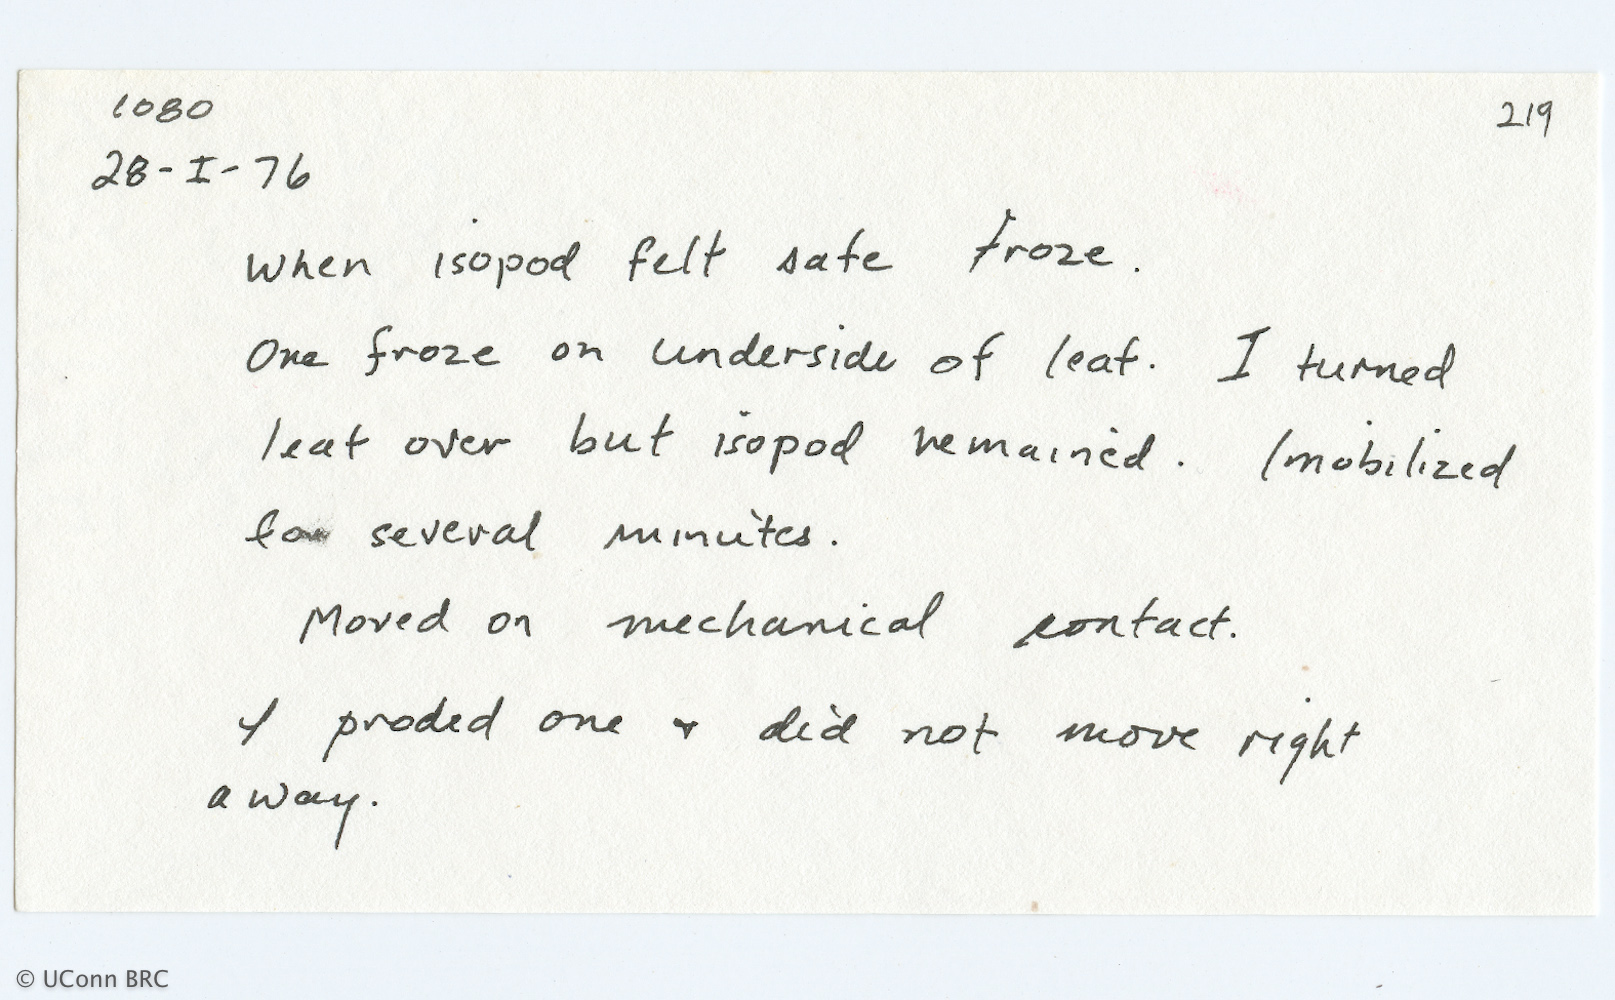 1080
219
28-I-76
When isopod felt safe froze.
One froze on underside of leaf. I turned
leaf over but isopod remained. Imobilized
for several minutes.
Moved on mechanical contact.
I proded one & did not move right
away.
© UConn BRC